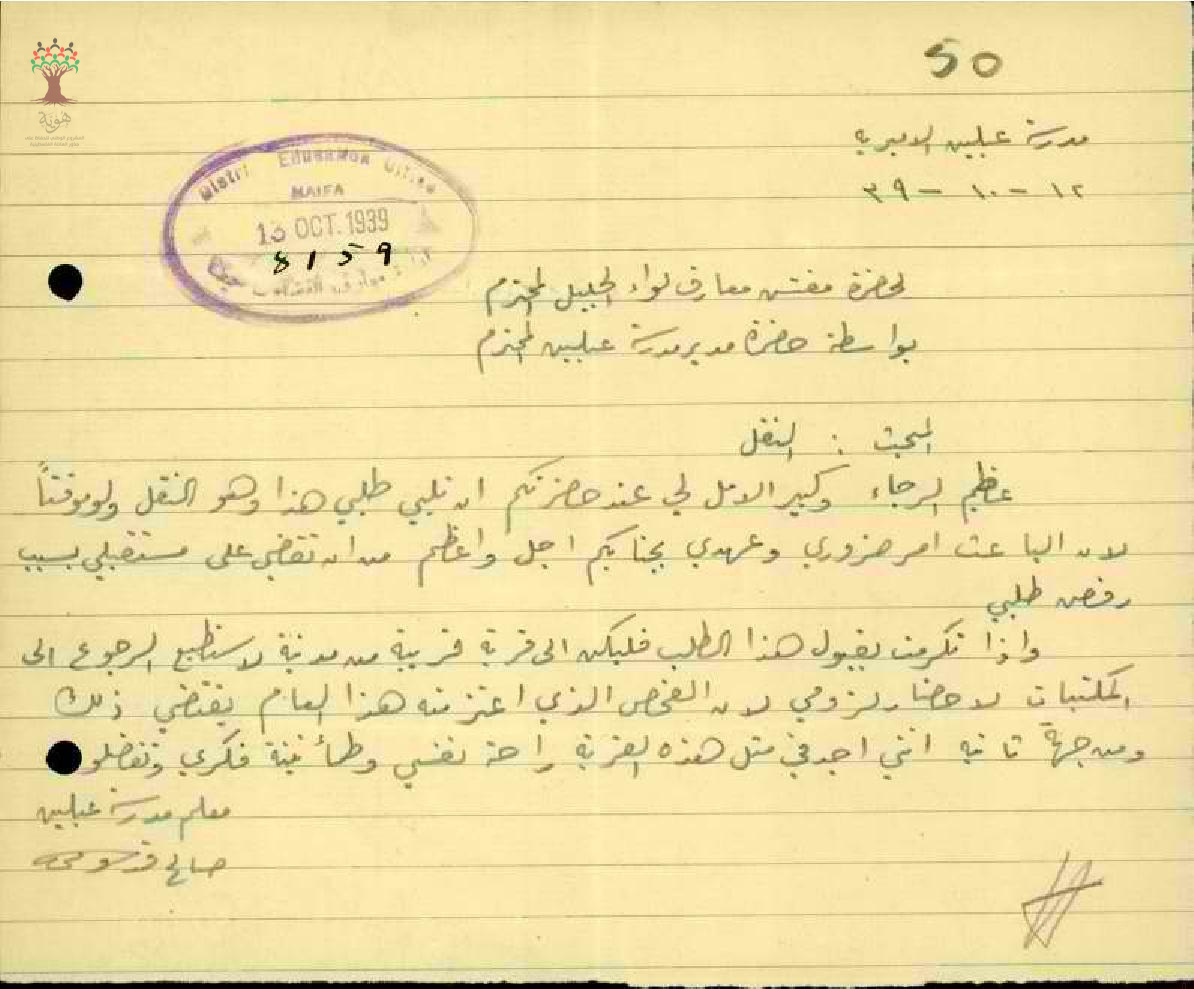 50
مدرسة عبلين الاميرية
١٢ - ١٠ - ٣٩
هوية
District Education Office
HAIFA
13 OCT. 1939
8159
لحضرة مفتش معارف لواء الجليل المحترم
بواسطة حضرة مدير مدرسة عبلين المحترم
المبحث : النقل
عظيم الرجاء وكبير الامل لي عند حضرتكم ان تلبي طلبي هذا وهو النقل ولو موقتاً
لان الباعث امر ضروري وعهدي بجنابكم اجل واعظم من ان تقضي على مستقبلي بسبب
رفض طلبي
واذا تكرمت بقبول هذا الطلب فليكن الى قرية قريبة من مدينة لاستطيع الرجوع الى
المكتبات لاحضار لزومي لان الفحص الذي اعتزمته هذا العام يقتضي ذلك
ومن جهة ثانية انني اجد في مثل هذه القرية راحة نفسي وطمأنينة فكري وتفضلو
معلم مدرسة عبلين
صالح